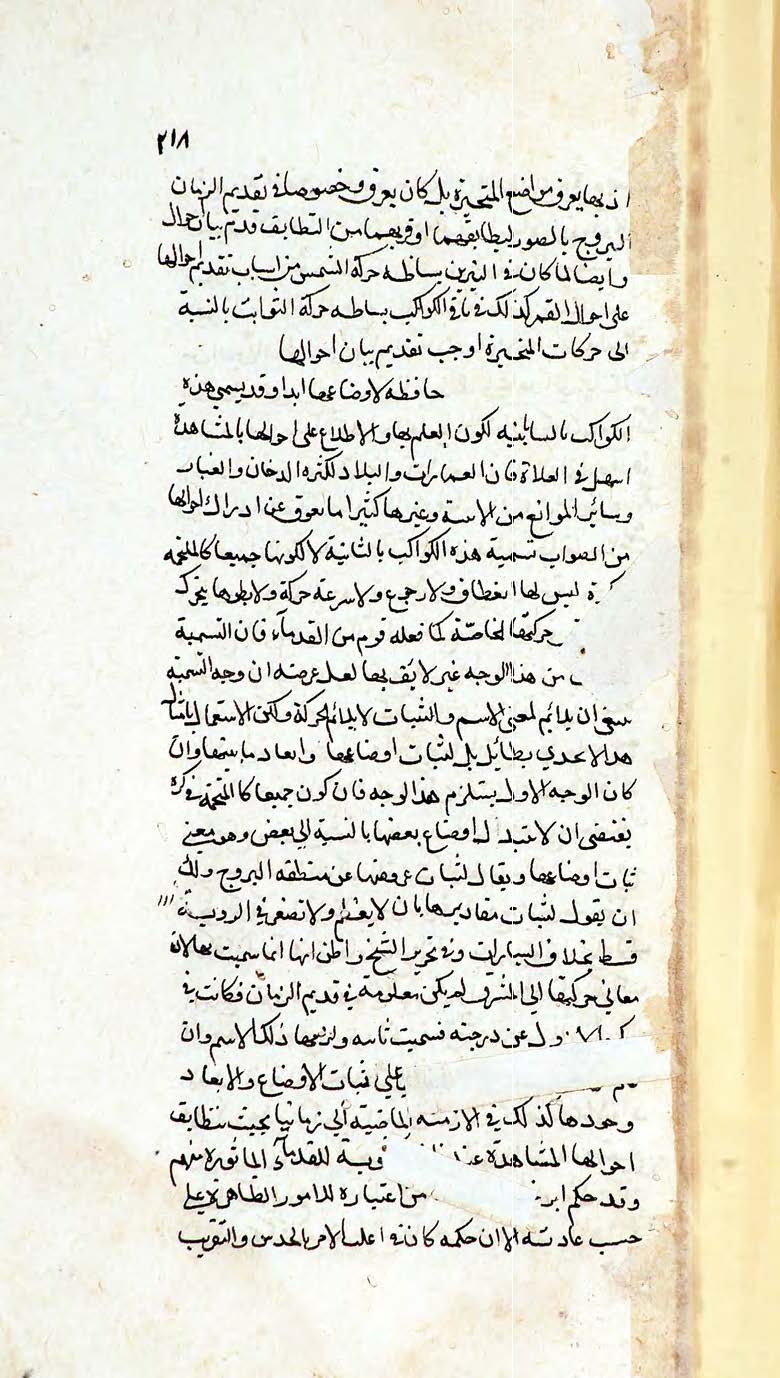 ٢١٨
اذ بها يعرف مواضع المتحيرة بل كان يعرف وخصوصا في تقديم الزمان
البروج بالصور ليطابقهما او قربهما من التطابق قدم بيان احوال
وايضا لما كان في النيرين بساطه حركة الشمس من اسباب تقديم احوالها
على احوال القمر كذلك في باقي الكواكب بساطه حركة الثوابت بالنسبة
الى حركات المتحيرة اوجب تقديم بيان احوالها
حافظه لاوضاعها ابدا وقد يسمى هذه
الكواكب لكون العلم بها والاطلاع على احوالها بالمشاهدة
اسهل في فان العمارات والبلاد لكثره الدخان والغبار
وسائر الموانع من وغيرها كثيرا ما يعوق عن ادراك احوالها
من الصواب تسمية هذه الكواكب بالثابتة لا لكونها جميعا كالملتحمه
ليس لها انعطاف ولا رجوع ولا سرعة حركة ولا بطوها
حركتها الخاصّة كما فعله قوم من القدماء فان التسمية
من هذا الوجه غير لعل غرضه ان وجه التسمية
ان يلائم لمعنى الاسم والثبات لا يلائم الحركة ولكن الاستعمال
هذا لا يجدي بطائل بل لثبات اوضاعها وابعاد ما بينها وان
كان الوجه الاول يستلزم هذا الوجه فان كون جميعها كالملتحمة في كرة
يقتضى ان لا يتبدل اوضاع بعضها بالنسبة الى بعض وهو معنى
ثبات اوضاعها ويقال لثبات عروضها عن منطقه البروج ولك
ان يقول لثبات مقاديرها بان لا يعظم ولا تصغر في الروية
قط بخلاف السيارات وفي تحرير الشيخ واظن انها انما سميت بها لان
معاني حركتها الى المشرق لم يكن معلومة في قديم الزمان فكانت في
عن درجته فسميت ثابته ولزمها ذلك الاسم وان
على ثبات الاوضاع والابعاد
وجودها كذلك في الازمنه الماضية الى زماننا بحيث يتطابق
احوالها المشاهدة للقدماء الماثورة منهم
وقد حكم من اعتباره للامور الظاهرة على
حسب عادته الا ان حكمه كان في اغلب الامر بالحدس والتقريب